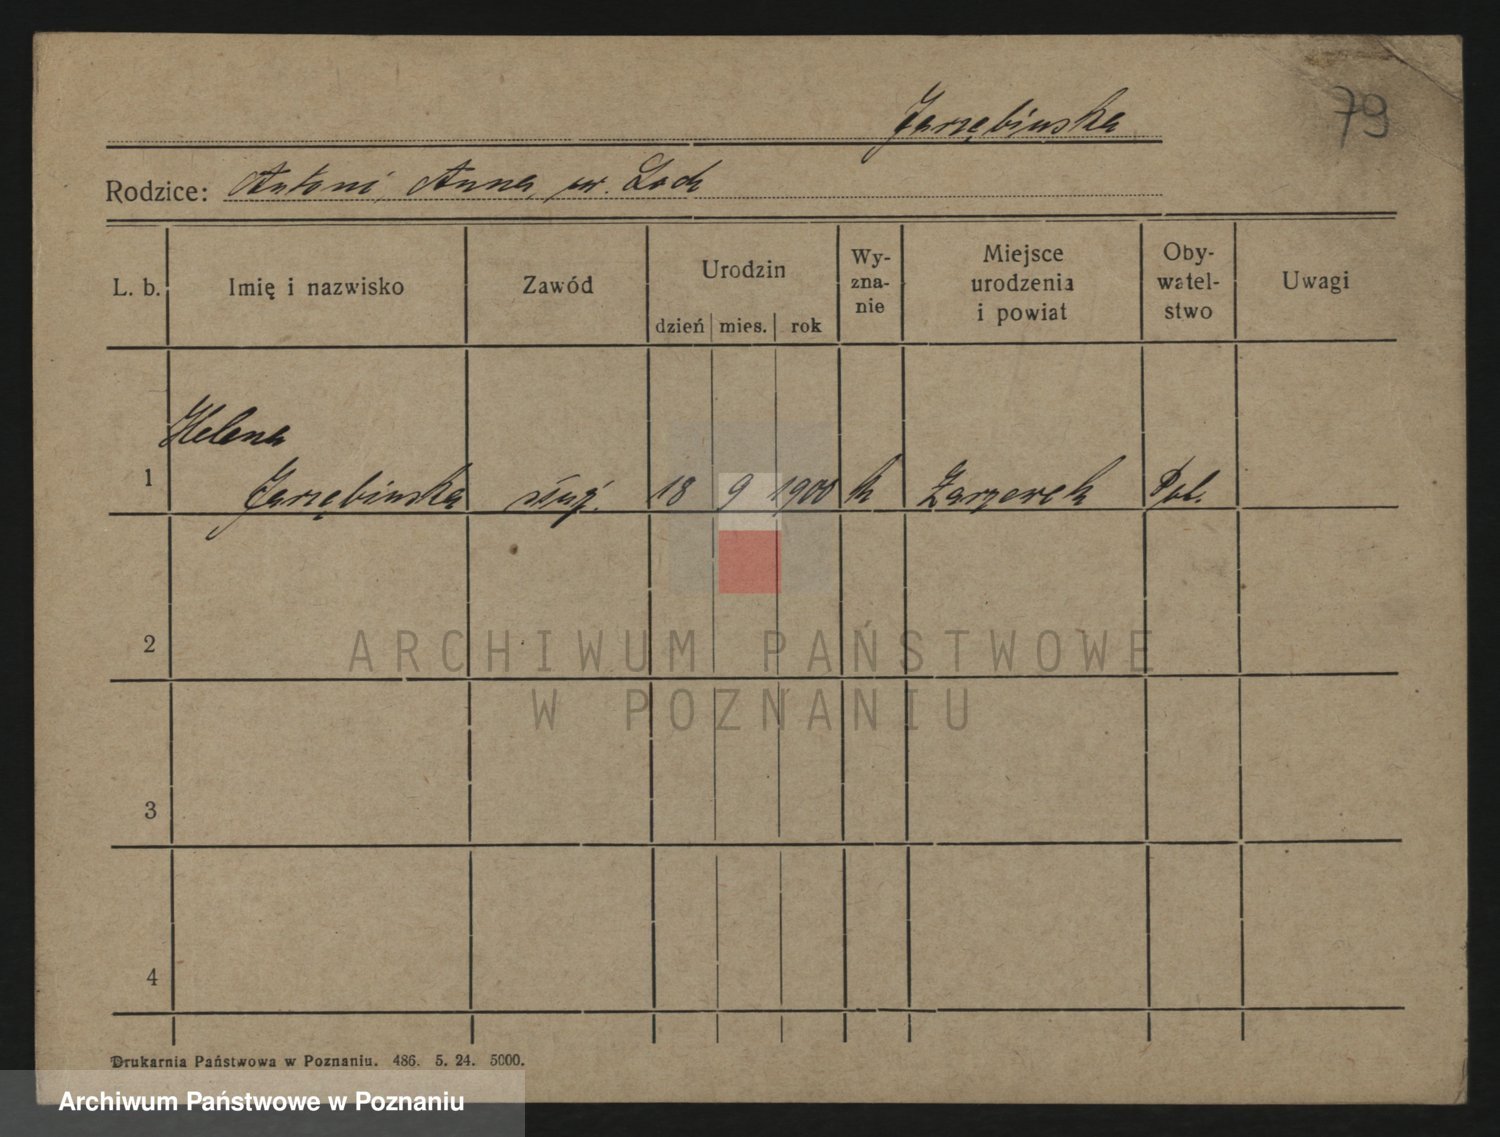 79
Jarzębinska
Rodzice: Antoni, Anna, ur. Loch
L. b. Imię i nazwisko Zawód Urodzin dzień mies. rok Wy-zna-nie Miejsce urodzenia i powiat Oby-watel-stwo Uwagi
Helena
1 Jarzębinska służ. 18 9 1900 k Pol.
2
ARCHIWUM PAŃSTWOWE
W POZNANIU
3
4
Drukarnia Państwowa w Poznaniu. 486. 5. 24. 5000.
Archiwum Państwowe w Poznaniu